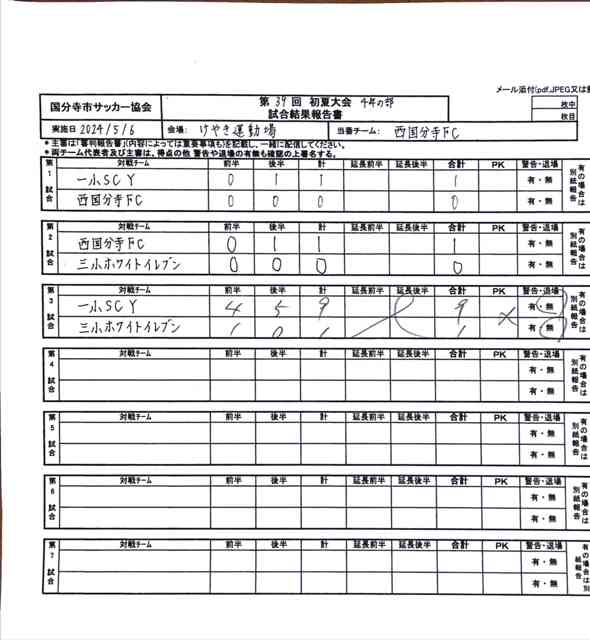 メール添付(pdf.JPEG又は
国分寺市サッカー協会
第 39 回 初夏大会 4年の部
試合結果報告書
枚中
枚目
実施日 2024/5/6 会場: けやき運動場 当番チーム: 西国分寺FC
*主審は「審判報告書」(内容によっては重要事項も)を記載し、一緒に配信してください。
*両チーム代表者及び主審は、得点の他 警告や退場の有無も確認の上署名する。
第1試合 対戦チーム 前半 後半 計 延長前半 延長後半 合計 PK 警告・退場 有の場合は別紙報告
一小SC Y 0 1 1 1 有・無
西国分寺FC 0 0 0 0 有・無
第2試合 対戦チーム 前半 後半 計 延長前半 延長後半 合計 PK 警告・退場 有の場合は別紙報告
西国分寺FC 0 1 1 1 有・無
三小ホワイトイレブン 0 0 0 0 有・無
第3試合 対戦チーム 前半 後半 計 延長前半 延長後半 合計 PK 警告・退場 有の場合は別紙報告
一小SC Y 4 5 9 9 有・無
三小ホワイトイレブン 1 0 1 1 有・無
第4試合 対戦チーム 前半 後半 計 延長前半 延長後半 合計 PK 警告・退場 有の場合は別紙報告
有・無
有・無
第5試合 対戦チーム 前半 後半 計 延長前半 延長後半 合計 PK 警告・退場 有の場合は別紙報告
有・無
有・無
第6試合 対戦チーム 前半 後半 計 延長前半 延長後半 合計 PK 警告・退場 有の場合は別紙報告
有・無
有・無
第7試合 対戦チーム 前半 後半 計 延長前半 延長後半 合計 PK 警告・退場 有の場合は別紙報告
有・無
有・無